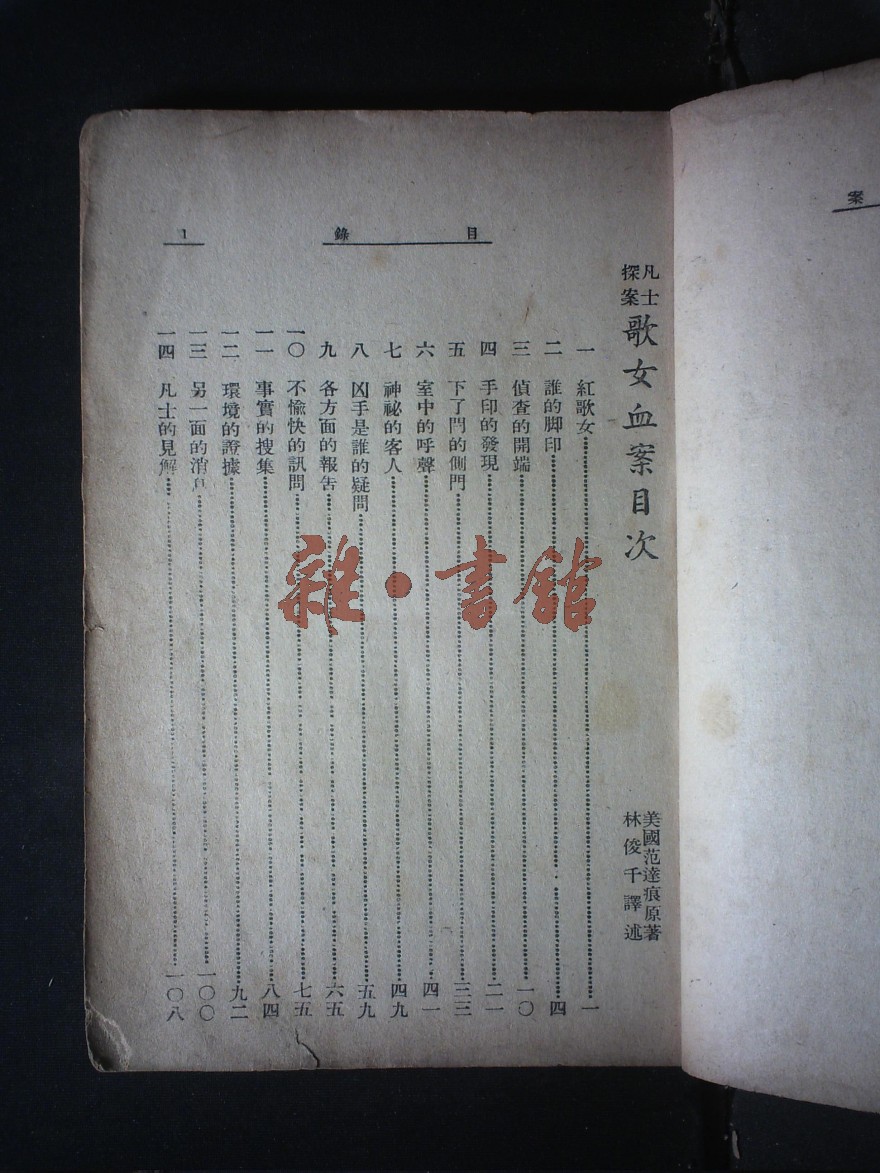 案
凡士探案 歌女血案目次
美國范達痕原著
林俊千譯述
目錄
一 紅歌女 一
二 誰的脚印 四
三 偵查的開端 一〇
四 手印的發現 二一
五 下了閂的側門 三三
六 室中的呼聲 四一
七 神祕的客人 四九
八 凶手是誰的疑問 五九
九 各方面的報告 六五
一〇 不愉快的訊問 七五
一一 事實的搜集 八四
一二 環境的證據 九二
一三 另一面的消息 一〇〇
一四 凡士的見解 一〇八
1
雜·書館